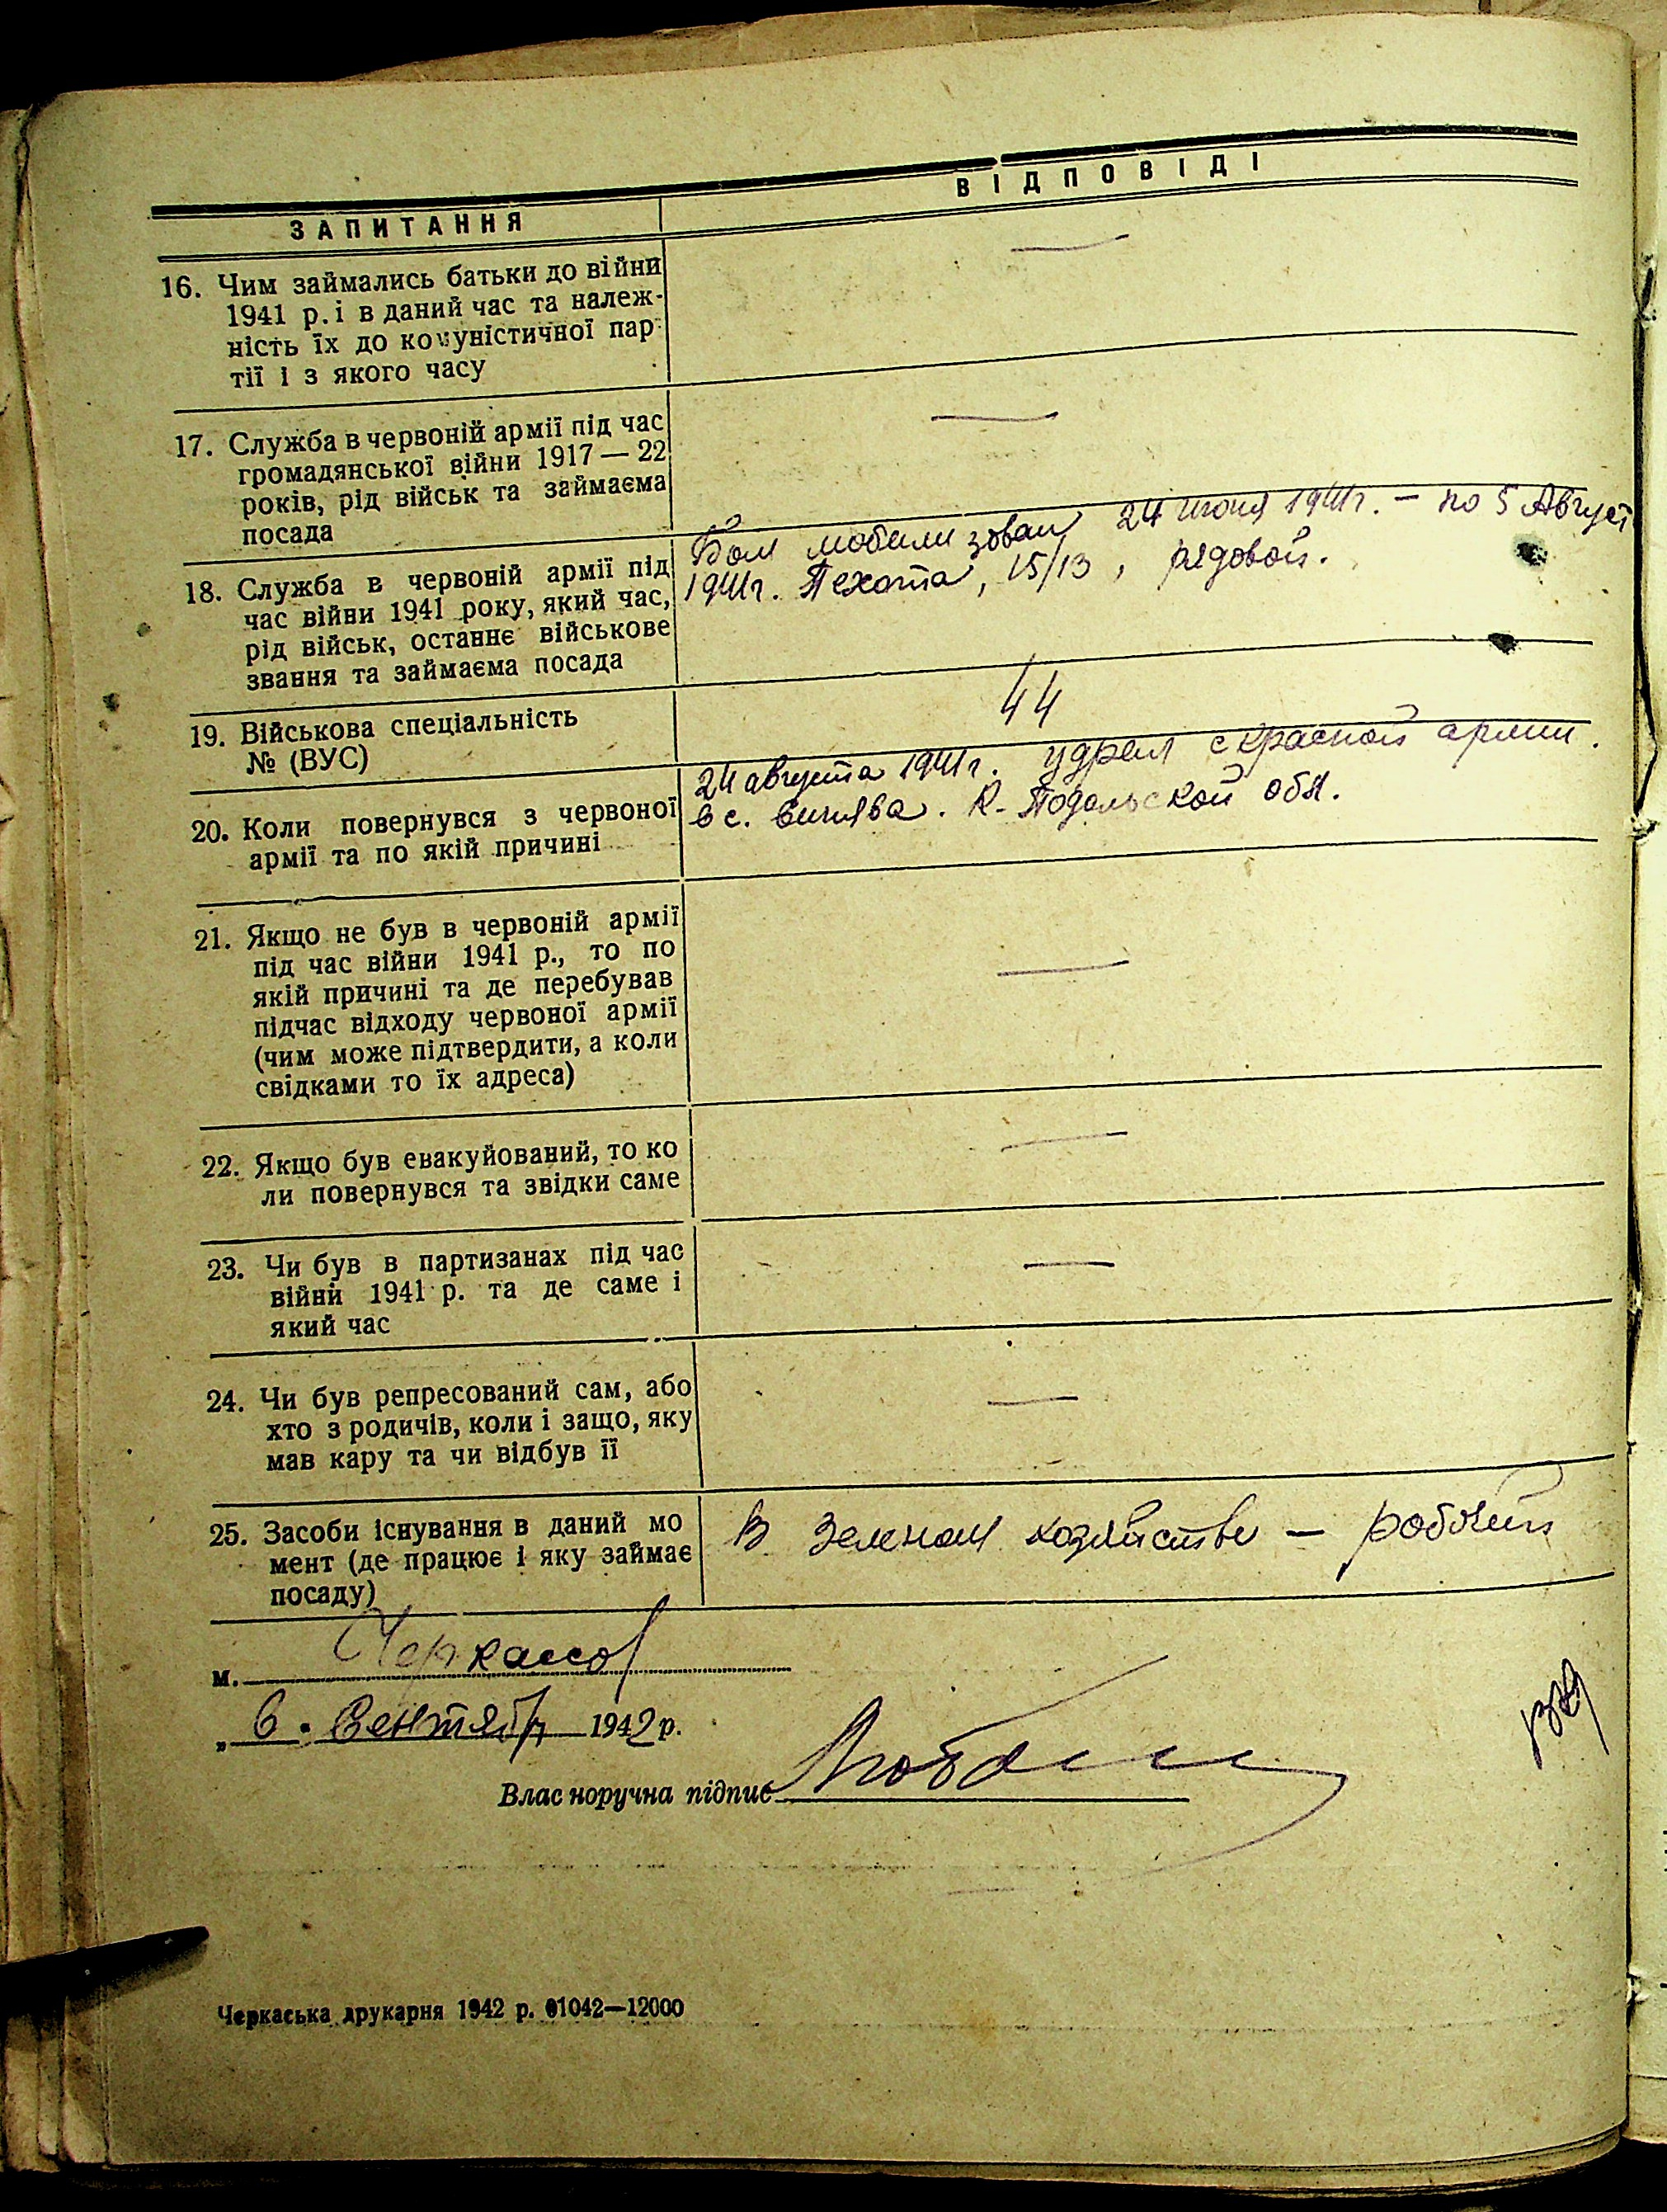 ЗАПИТАННЯ
ВІДПОВІДІ
16. Чим займались батьки до війни
1941 р. і в даний час та належ-
ність їх до комуністичної пар-
тії і з якого часу
—
17. Служба в червоній армії під час
громадянської війни 1917 — 22
років, рід військ та займаєма
посада
—
18. Служба в червоній армії під
час війни 1941 року, який час,
рід військ, останнє військове
звання та займаєма посада
Был мобилизован 24 июня 1941г. – по 5 Август
1941г. Пехота, 15/13, рядовой.
19. Військова спеціальність
№ (ВУС)
44
20. Коли повернувся з червоної
армії та по якій причині
24 августа 1941г. удрал с красной армии.
в с. К-Подольской обл.
21. Якщо не був в червоній армії
під час війни 1941 р., то по
якій причині та де перебував
підчас відходу червоної армії
(чим може підтвердити, а коли
свідками то їх адреса)
—
22. Якщо був евакуйований, то ко
ли повернувся та звідки саме
—
23. Чи був в партизанах під час
війни 1941 р. та де саме і
який час
—
24. Чи був репресований сам, або
хто з родичів, коли і защо, яку
мав кару та чи відбув її
—
25. Засоби існування в даний мо
мент (де працює і яку займає
посаду)
В Зеленом хозяйстве — робочий
м. Черкассы
„ 6. Сентябр 1942 р.
Власноручна підпис
Черкаська друкарня 1942 р. 01042—12000